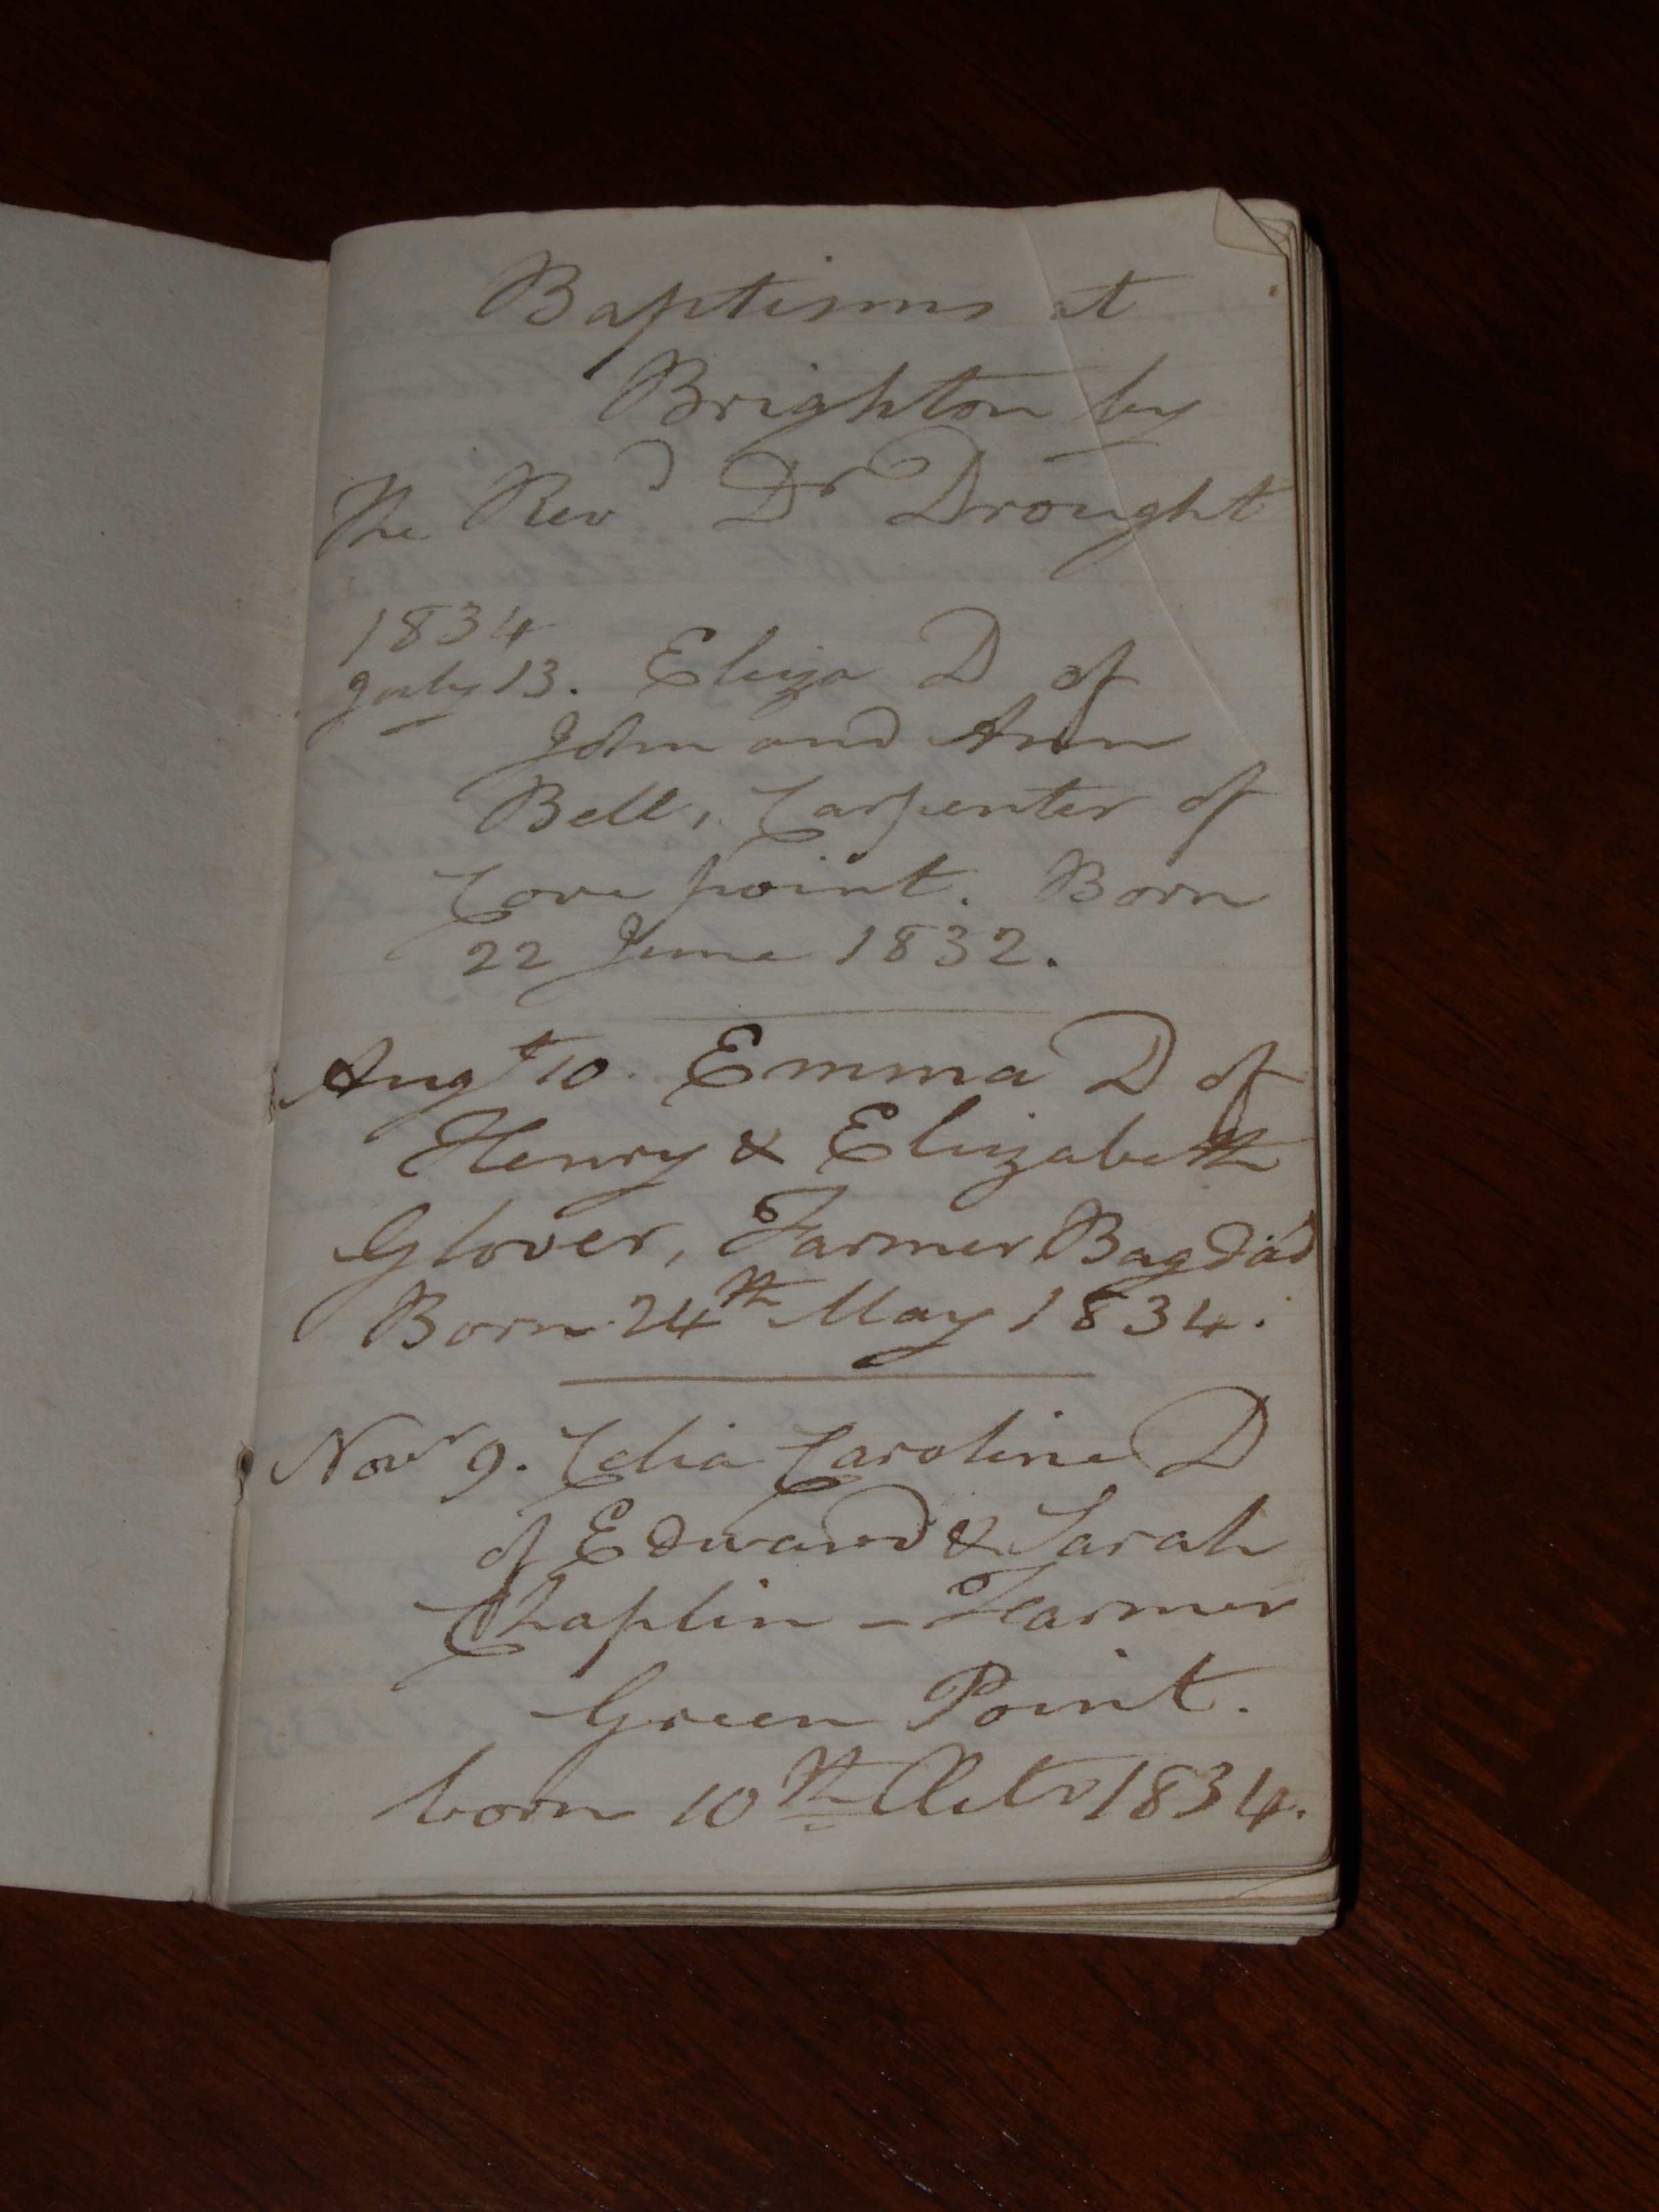 Baptisms at
Brighton by
The Revd Dr Drought
1834
July 13. Eliza D of
John and Ann
Bell, Carpenter of
Cove point. Born
22 June 1832.
Augt 10. Emma D of
Henry & Elizabeth
Glover, Farmer Bagdad
Born 24th May 1834.
Novr 9. Celia Caroline D
of Edward & Sarah
Chaplin - Farmer
Green Point.
born 10th Octr 1834.